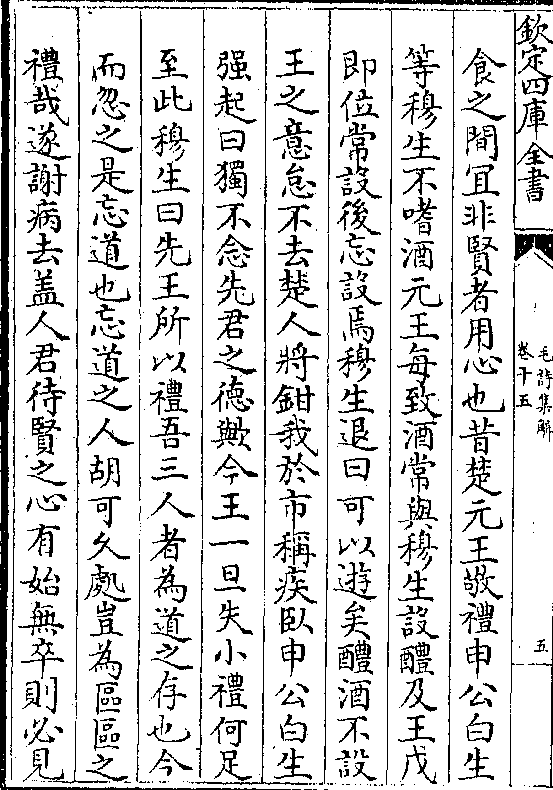 欽定四庫全書
毛詩集解
卷十五
五
食之間宜非賢者用心也昔楚元王敬禮申公白生
等穆生不嗜酒元王每致酒常與穆生設醴及王戊
即位常設後忘設焉穆生退曰可以逝矣醴酒不設
王之意怠不去楚人將鉗我於市稱疾臥申公白生
强起曰獨不念先君之德歟今王一旦失小禮何足
至此穆生曰先王所以禮吾三人者為道之存也今
而忽之是忘道也忘道之人胡可久處豈為區區之
禮哉遂謝病去盖人君待賢之心有始無卒則必見